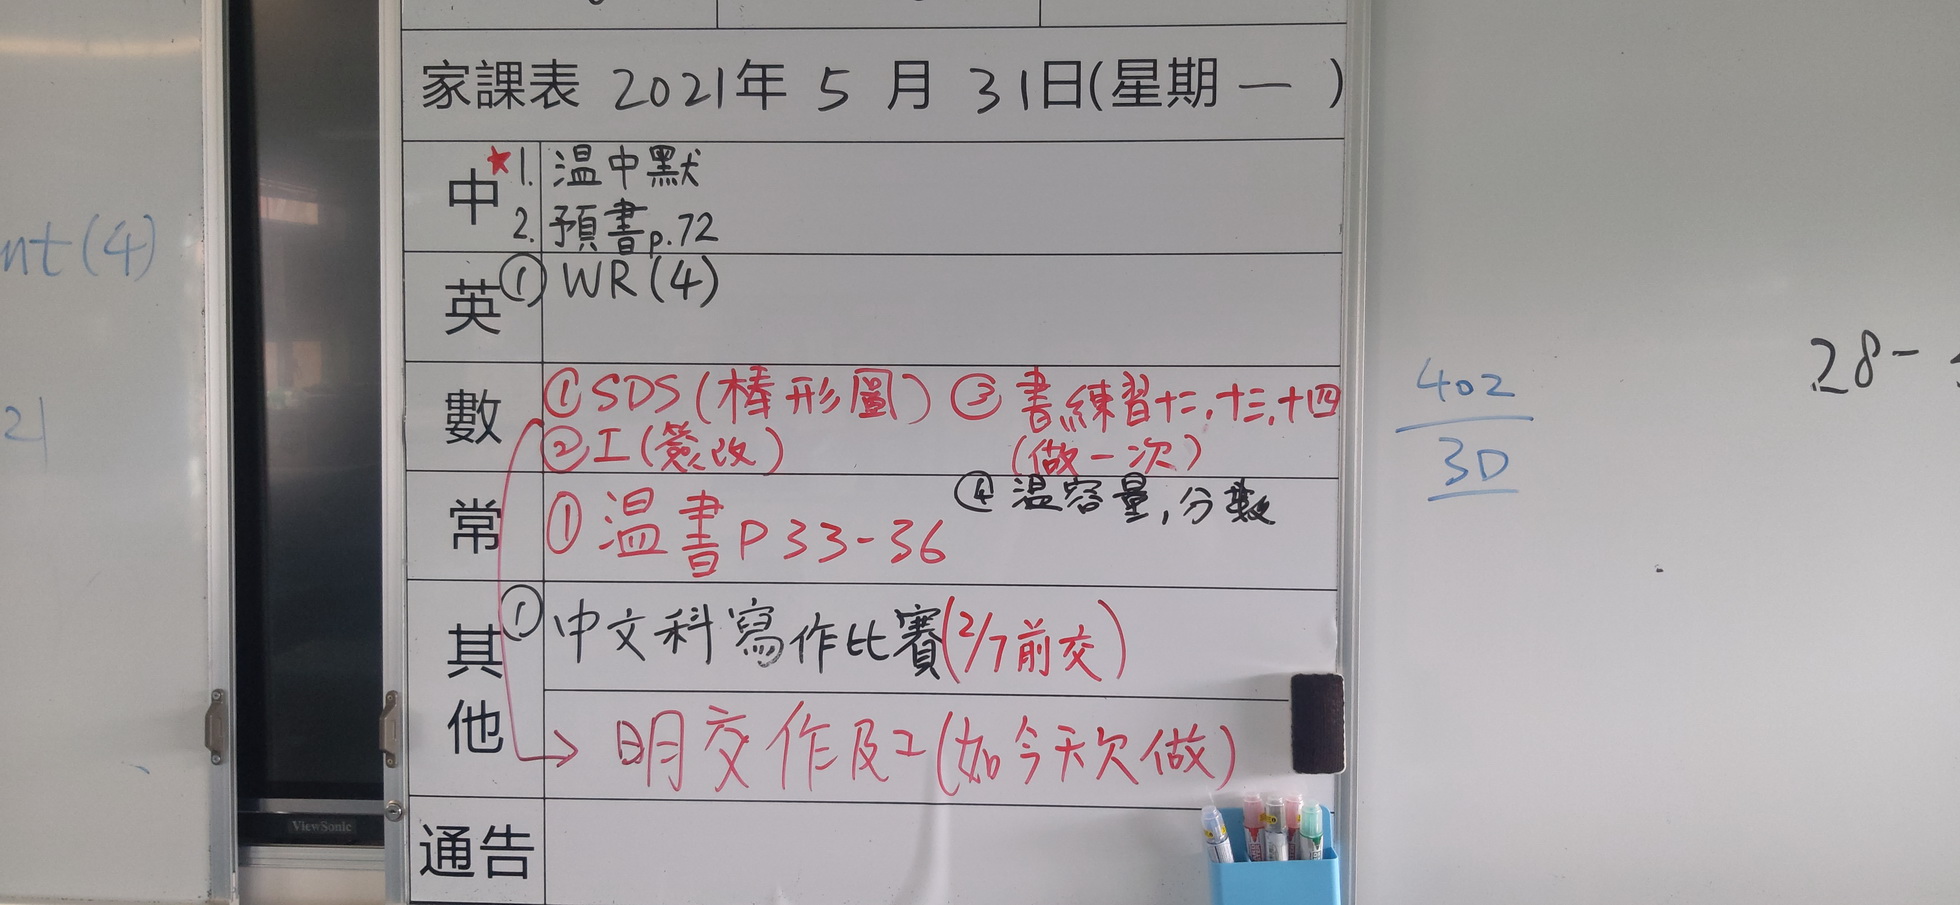 nt(4)
21
家課表 2021年 5 月 31日(星期 一 )
中 ★1. 温中默
2. 預書p.72
英 ① WR(4)
數 ① SDS(棒形圖) ③ 書練習十二,十三,十四
② 工(簽改) (做一次)
④ 温容量,分數
常 ① 温書P33-36
其他 ① 中文科寫作比賽(2/7前交)
→ 明交作及工(如今天欠做)
通告
402
3D
28-
ViewSonic